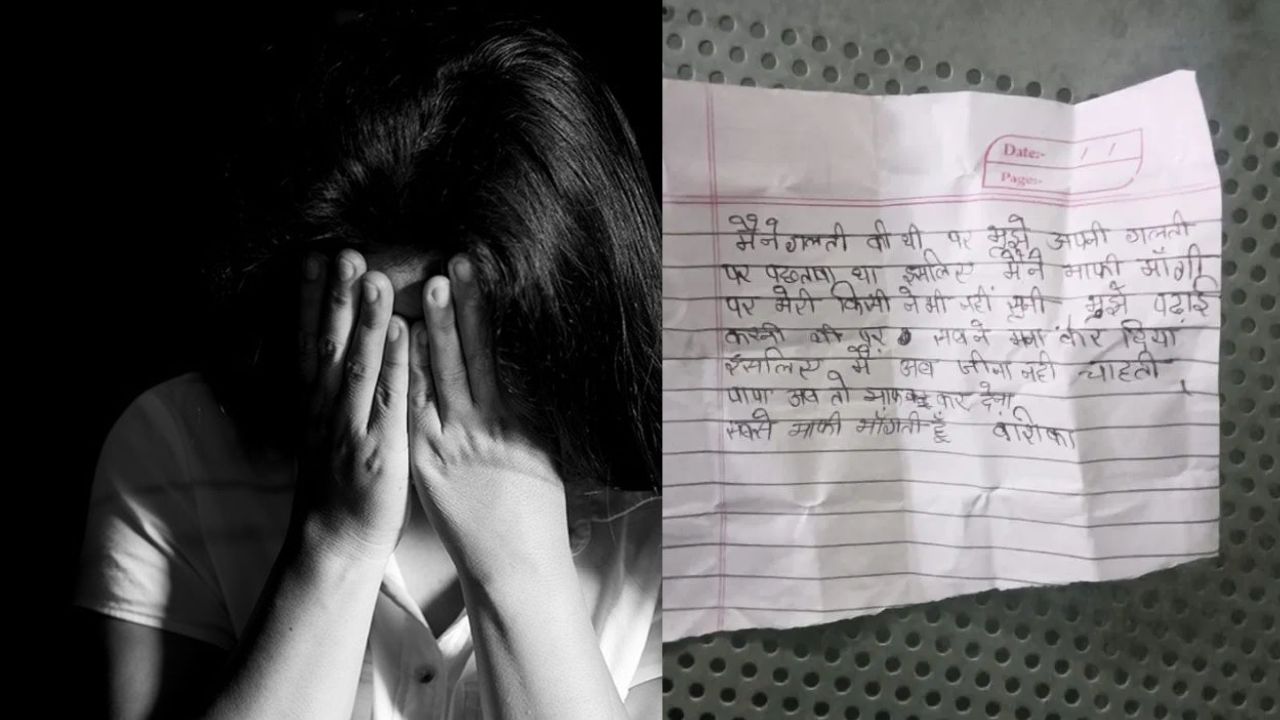 Date:- / /
Page:-
मैंने गलती की थी पर मुझे अपनी गलती
पर पछतावा था इसलिए मैंने माफी माँगी
पर मेरी किसी ने भी नहीं सुनी मुझे पढाई
करनी थी पर सबने मना कर दिया
इसलिए मैं अब जीना नहीं चाहती
पापा अब तो माफ कर देना
सबसे माफी माँगती हूँ वंशिका